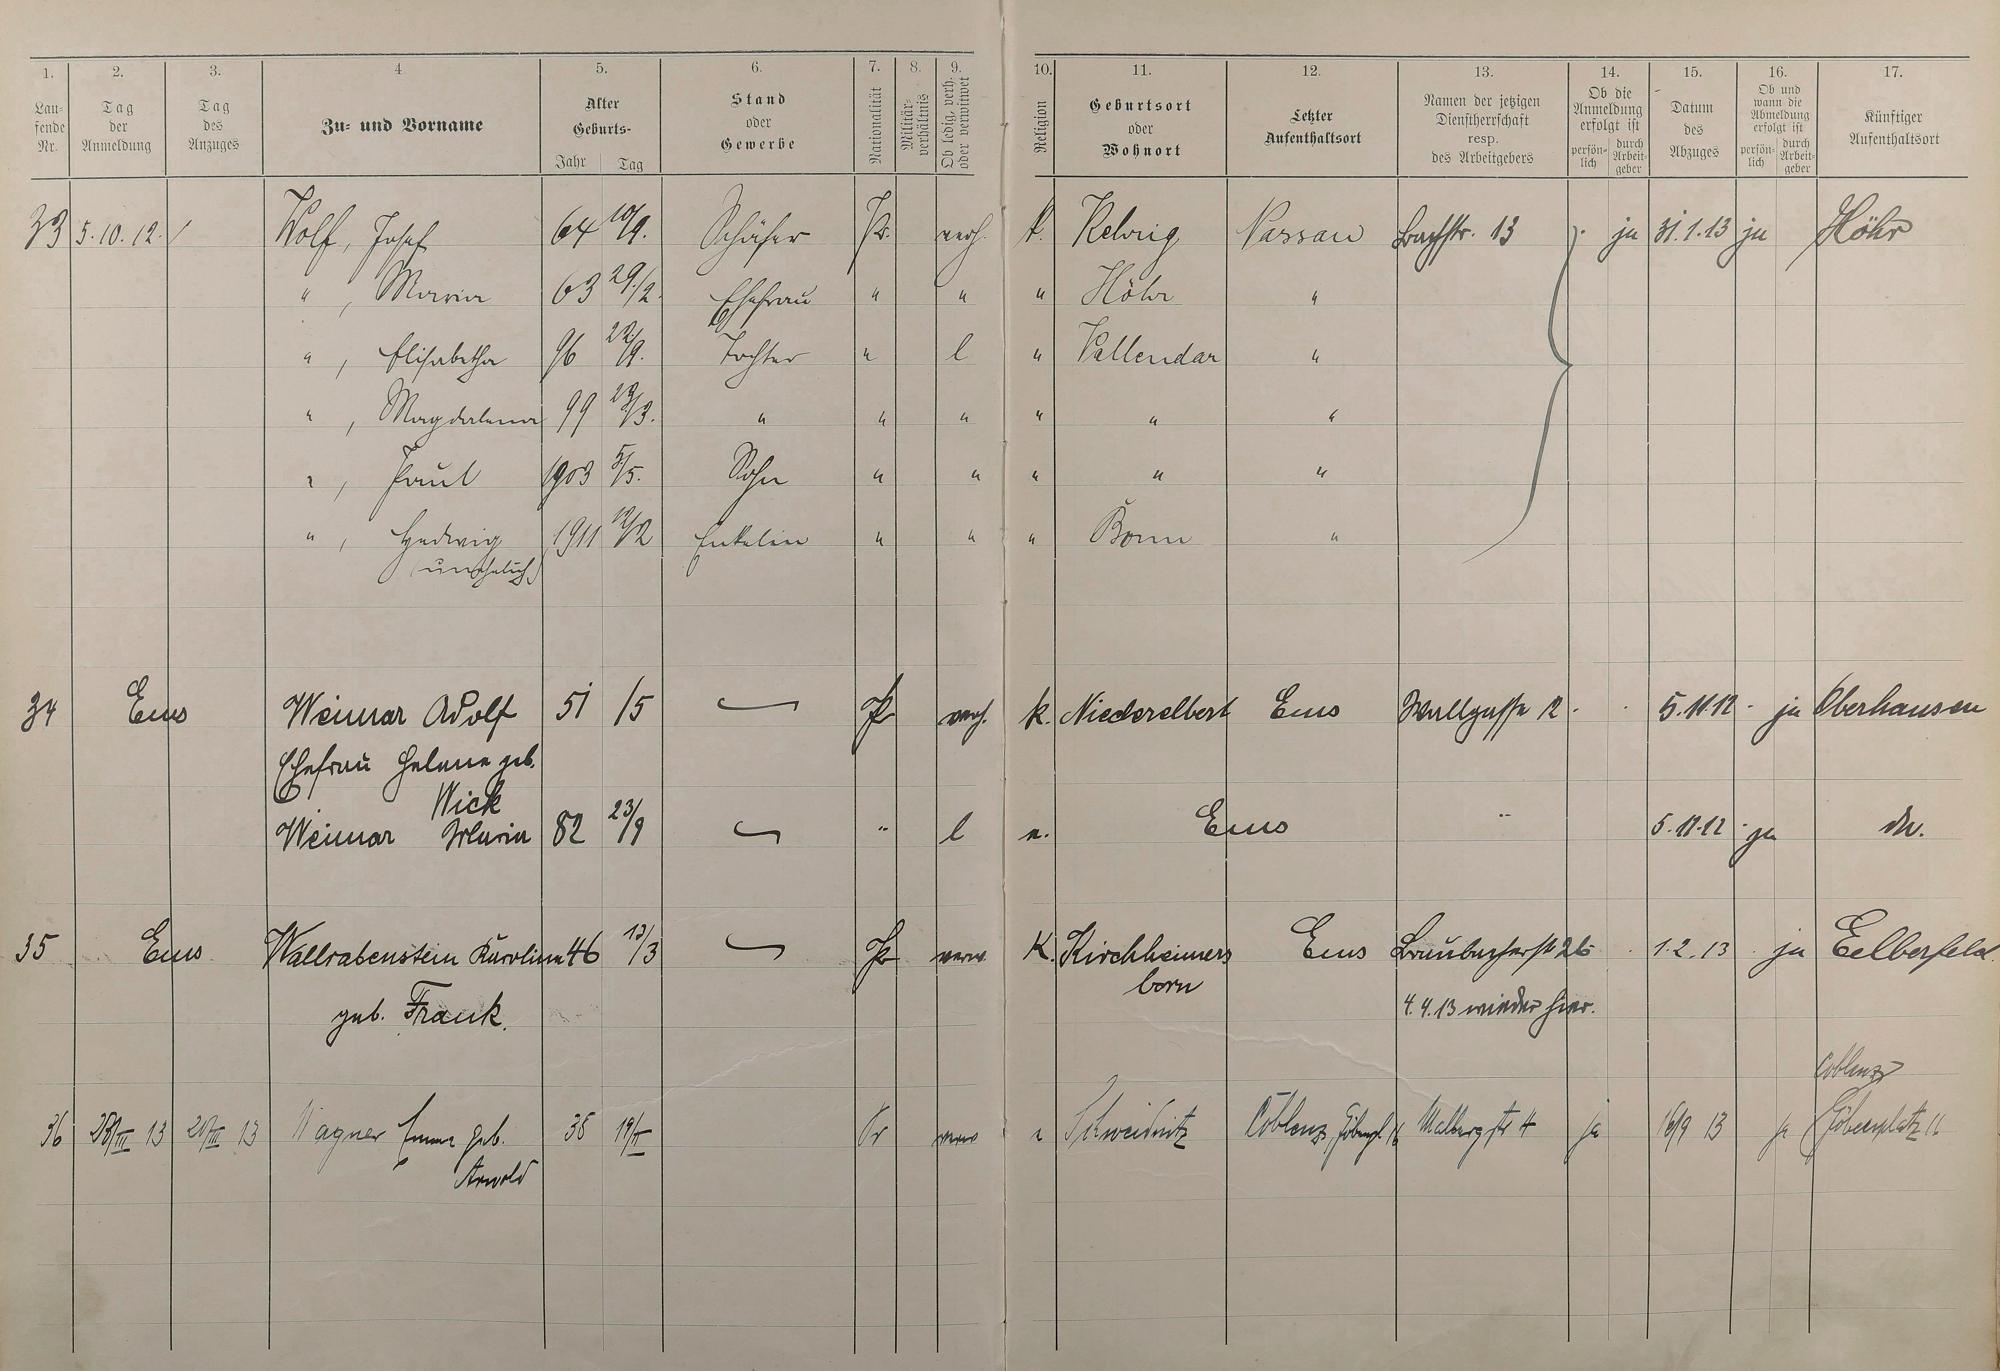 1. 2. 3. 4 5. 6. 7. 8. 9. 10. 11. 12. 13. 14. 15. 16. 17.
Lau-fende Nr.
Tag der Anmeldung
Tag des Anzuges
Zu- und Vorname
Alter Geburts- Jahr Tag
Stand oder Gewerbe
Nationalität
Militär-verhältnis
Ob ledig, verh. oder verwitwet
Religion
Geburtsort oder Wohnort
Letzter Aufenthaltsort
Namen der jetzigen Dienstherrschaft resp. des Arbeitgebers
Ob die Anmeldung erfolgt ist persön-lich durch Arbeit-geber
Datum des Abzuges
Ob und wann die Abmeldung erfolgt ist persön-lich durch Arbeit-geber
Künftiger Aufenthaltsort
33 5.10.12. / Wolf, Josef 64 10/9. Schäfer Pr. verh. k. Kelrig Nassau Bachstr. 13 ja 31.1.13 ja Höhr
" , Maria 63 29./2. Ehefrau " " " Höhr "
" , Elisabetha 96 22./9. Tochter " l " Vallendar "
" , Magdalena 99 23/3. " " " " " "
" , Paul 1903 5/5. Sohn " " " " "
" , Hedwig 1911 12/12 Enkelin " " " Bonn "
(unehelich)
34 Ems Weimar Adolf 51 /5 Pr verh. k. Niederelbert Ems Wallgasse 12 . . 5.11.12 . ja Oberhausen
Ehefrau Helene geb.
Wick
Weimar Maria 82 23/9 " l e. Ems " 5.11.12 . ja do.
35 Ems Wallrabenstein Karoline 46 13/3 Pr verw. K. Kirchheimers Ems Braubacherstr 26 . 1.2.13 . ja Eelberfeld.
geb. Frank. born 4.4.13 wieder hier.
Coblenz
36 28/III 13 21/III 13 Wagner Emma geb. 38 19/II Pr verw Schweidnitz Coblenz, 16 Malbergstr 4 ja 16/9 13 ja Göbenplatz 11
Arnold